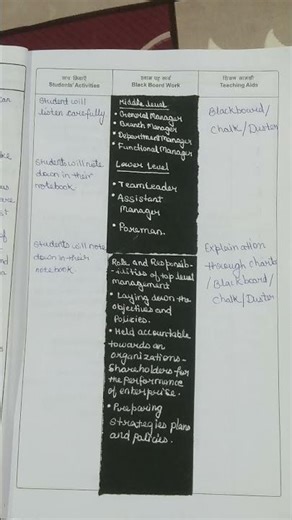 छात्र क्रियाएँ
Students' Activities
श्याम पट्ट कार्य
Black Board Work
शिक्षण सामग्री
Teaching Aids
Student will
listen carefully
Students will note
down in their
notebook
Students will note
down in their
notebook
Middle Level
• General Manager
• Branch Manager
• Department Manager
• Functional Manager
Lower Level
• Team Leader
• Assistant
Manager
• Foreman.
Role and Responsib-
-ilities of top level
management
• Laying down the
objectives and
Policies.
• Held accountable
towards an
organizations -
shareholders for
the performance
of enterprise.
• Preparing
strategies plans
and policies.
Blackboard/
Chalk/Duster
Explaination
through charts
/Blackboard/
Chalk/Duster